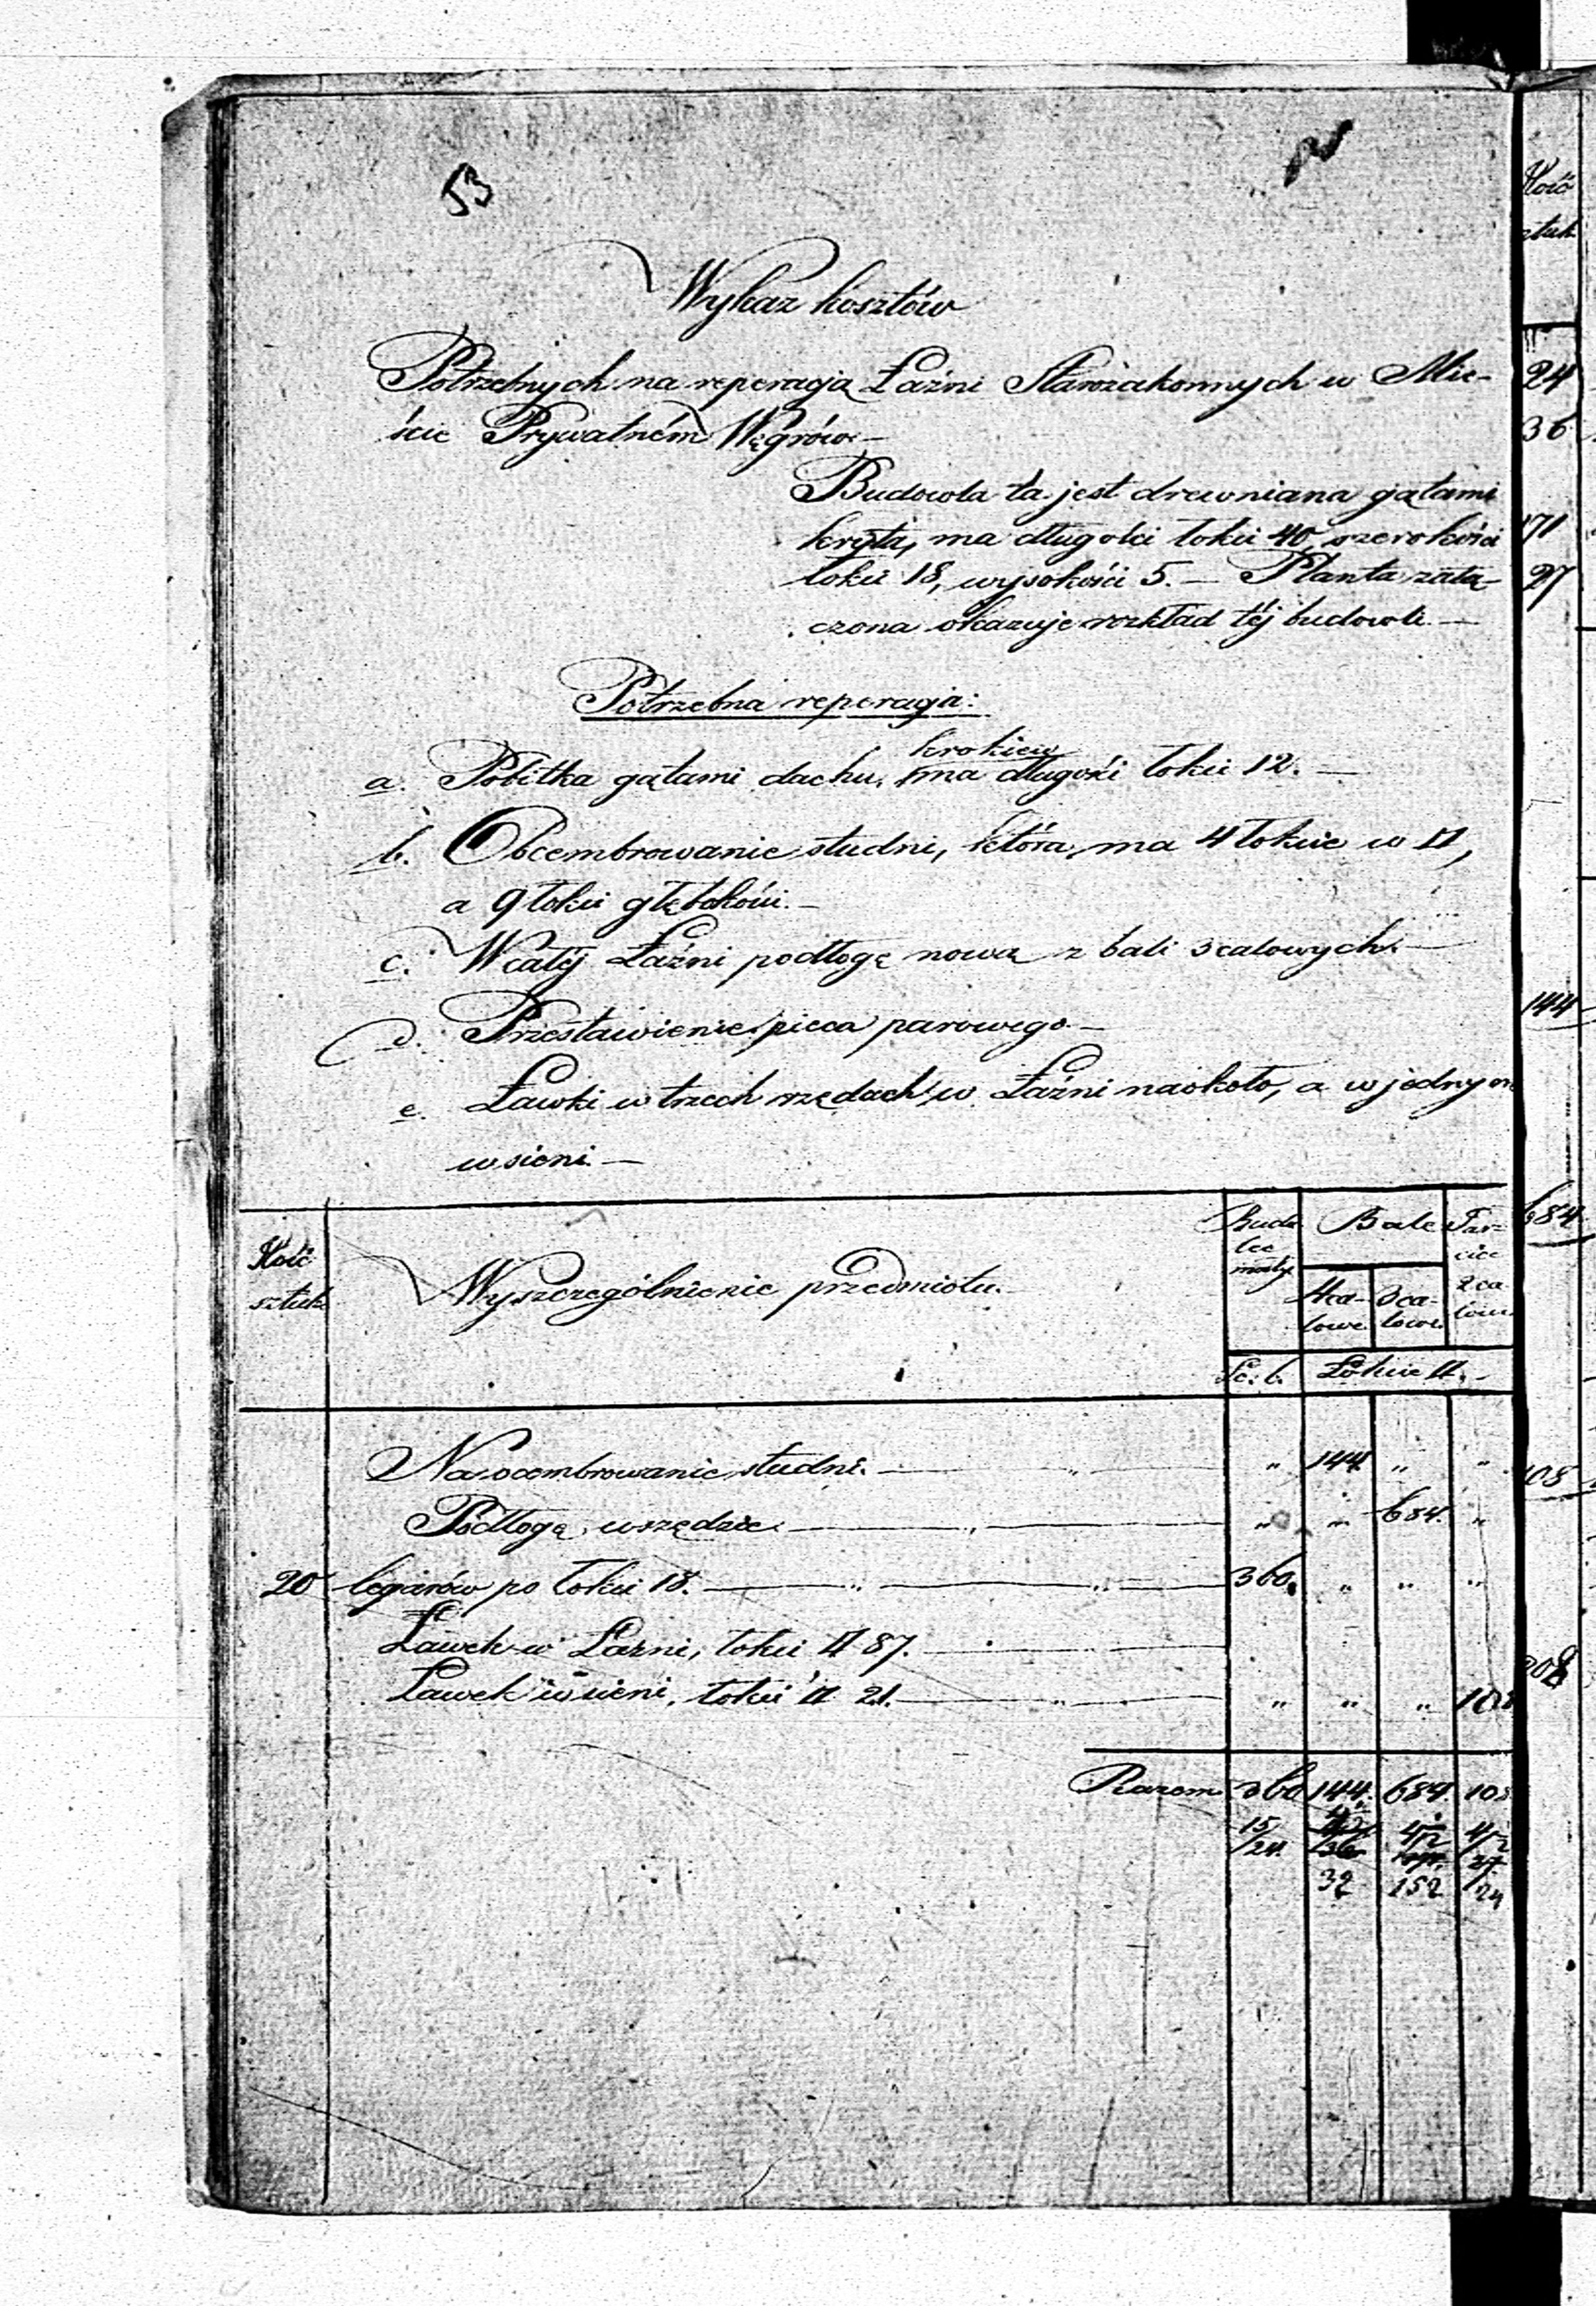 53
Wykaz kosztów
Potrzebnych na reperacją Łaźni Starozakonnych w Mie-
ście Prywatném Węgrów.—
Budowla ta jest drewniana gątami
kryta, ma długości łokci 40, szerokości
łokci 18, wysokości 5. — Planta załą-
czona okazuje rozkład téj budowli. —
Potrzebna reperacja:
krokiew
a. Pobitka gątami dachu, ma długości łokci 12. —
b. Ocembrowanie studni, która ma 4 łokcie w □,
a 9 łokci głębokości. —
c. W całéj Łaźni podłogę nową z bali 3 calowych. —
d. Przestawienie pieca parowego. —
e. Ławki w trzech rzędach w Łaźni naokoło, a w jednym
w sieni. —
Ilość sztuk
Wyszczególnienie przedmiotu.
Bale
Tar-
cice
2 ca
lowe
4 ca-
lowe
3 ca-
lowe
Łokcie □.
Na ocembrowanie studni. — " — " 144 " "
Podłogę wszędzie. — " — " " 684. "
20 legarów po łokci 18. — " — " — 360. " " "
Ławek w Łaźni, łokci □ 87. —
Ławek w sieni, łokci □ 21. — " — " " " 108
Razem 360 144. 684. 108
15/24.
32 152 24
Ilość
sztuk
24
36
171
27
144
684
108